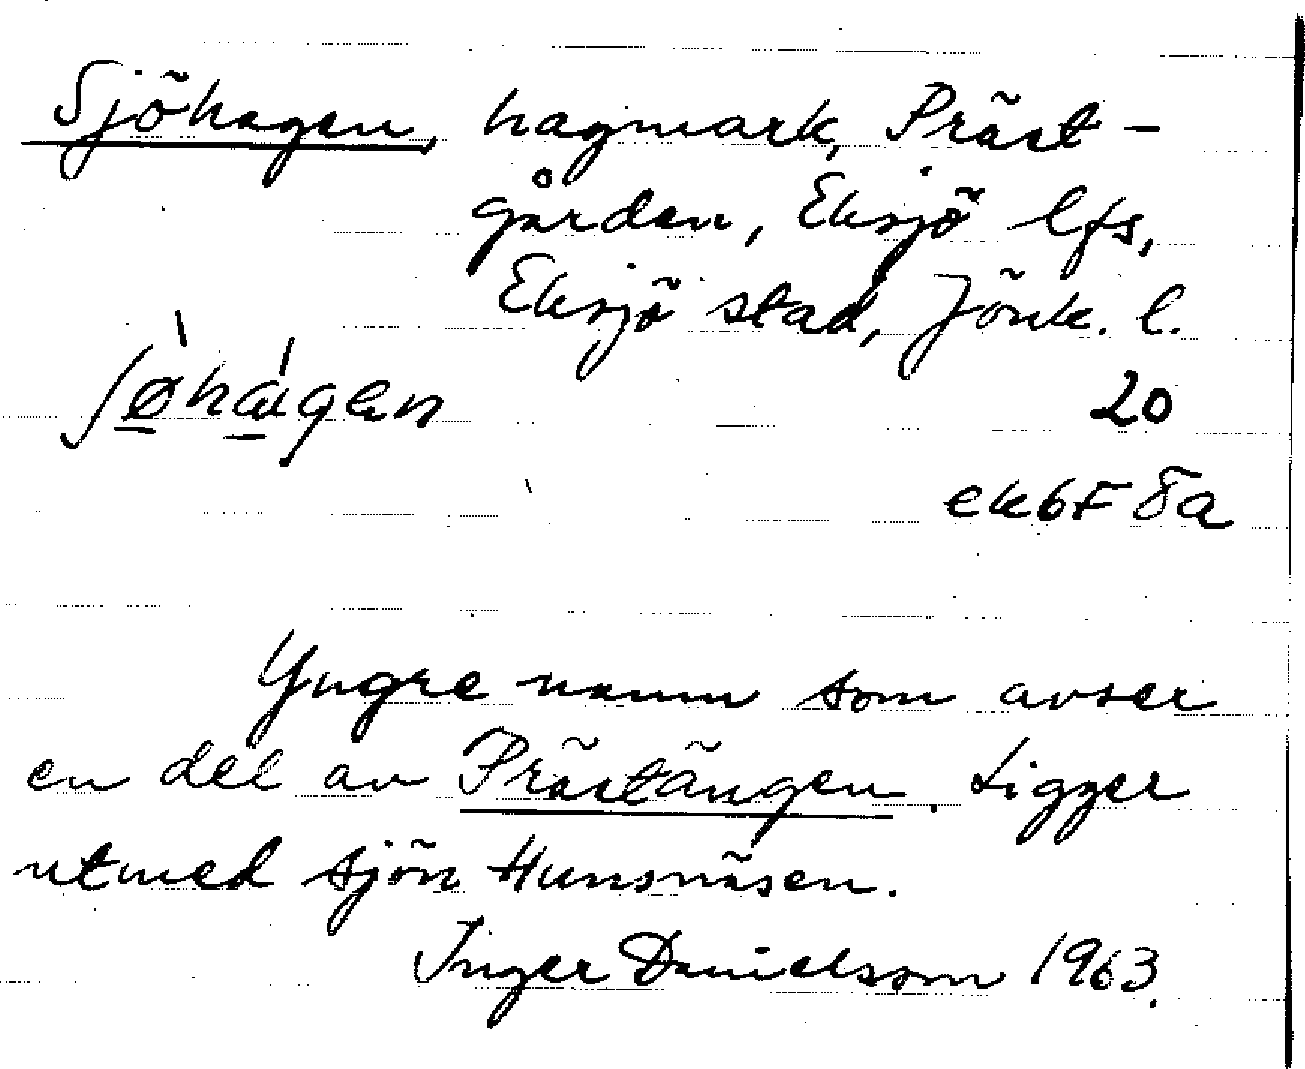 Sjöhagen, hagmark, Präst-
gården, Eksjö lfs,
Eksjö stad, Jönk. l.
20
ek 6F 8a
Yngre namn som avser
en del av Prästängen. Ligger
utmed sjön Hunsnäsen.
Inger Danielsom 1963.